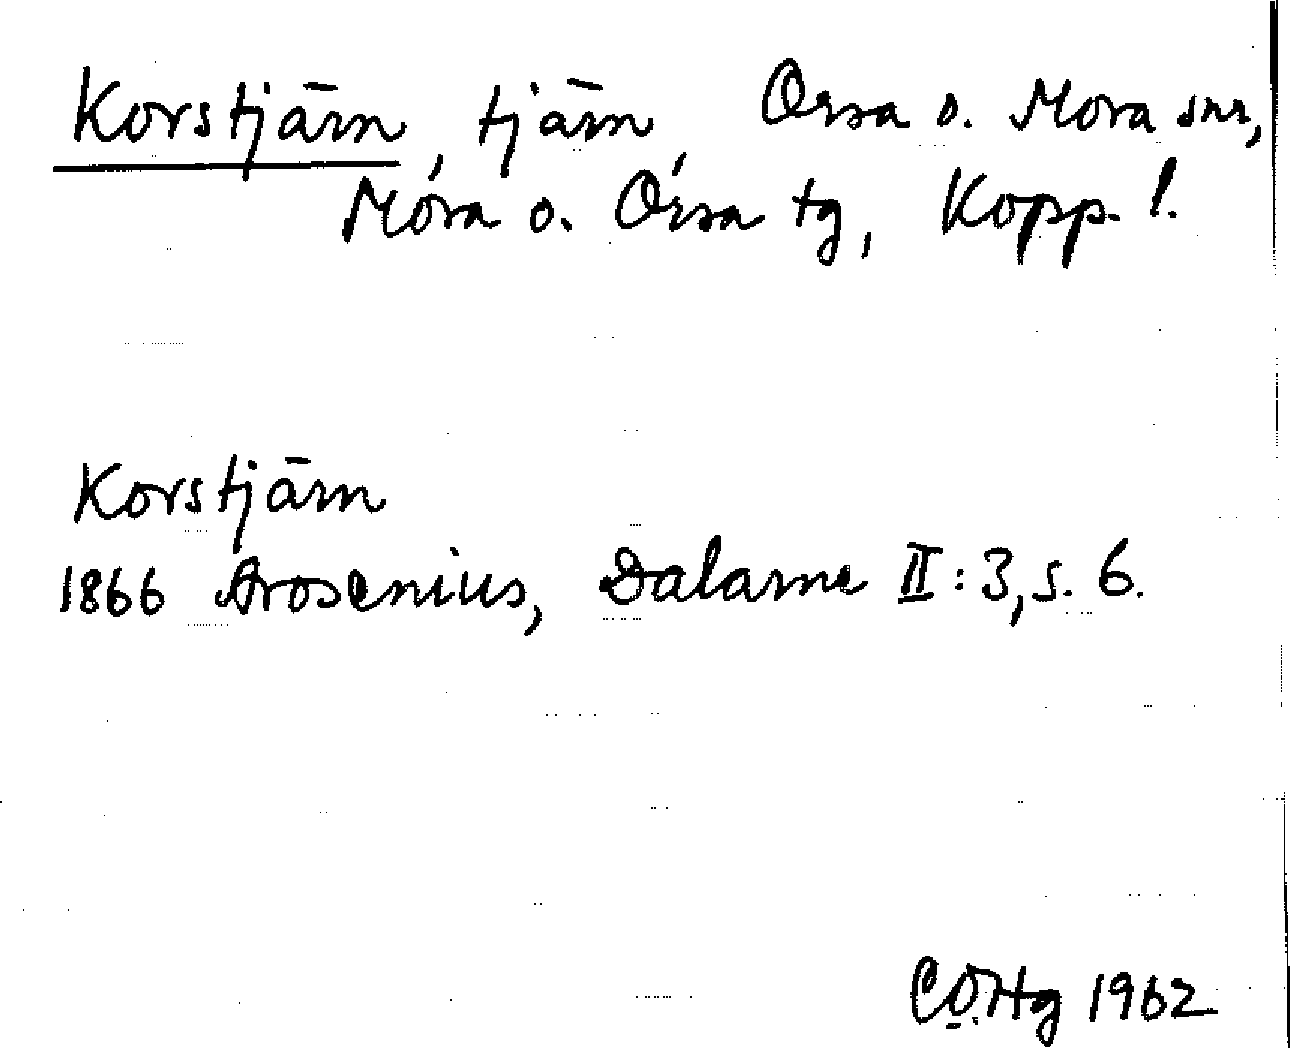 Korstjärn, tjärn, Orsa o. Mora snr,
Mora o. Orsa tg, Kopp. l.
Korstjärn
1866 Arosenius, Dalarne II:3, s. 6.
COHg 1962